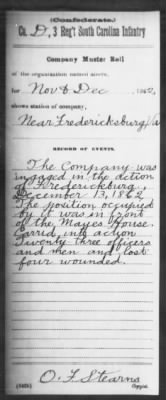 (Confederate.)
Co. D, 3 Reg't South Carolina Infantry
Company Muster Roll
of the organization named above,
for Nov & Dec, 1862,
shows station of company,
Near Fredericksburg, Va
RECORD OF EVENTS.
The Company was
ingaged in the action
of Fredericksburg,
December 13, 1862
The position occupied
by it was in front
of the Mayes House.
Carrid into action
Twenty three officers
and men and lost
four wounded.
O. F. Stearns
Copyist.